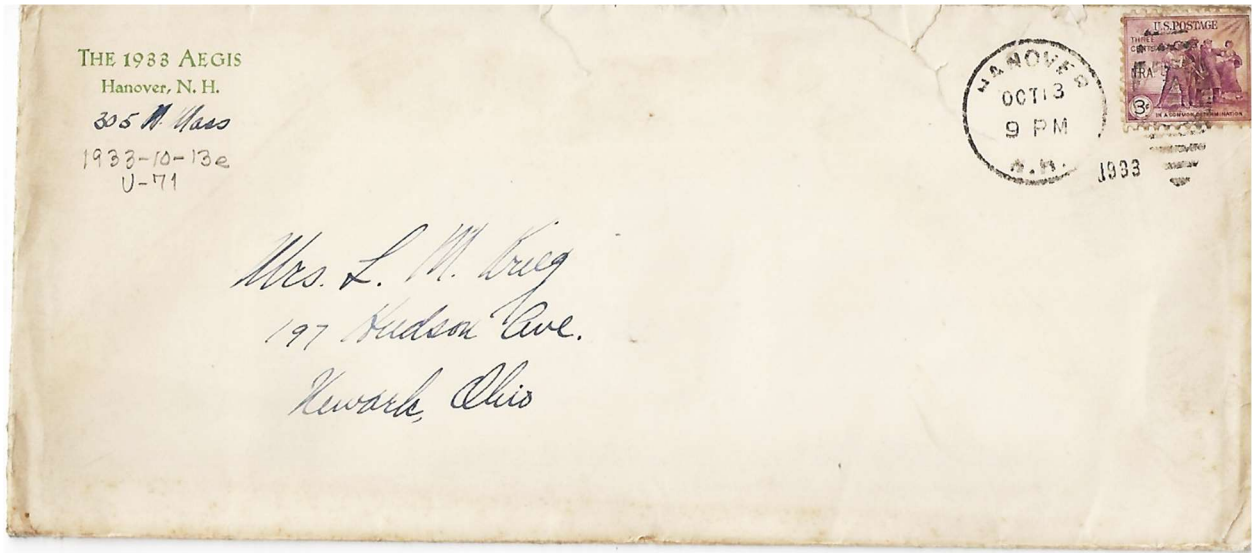 THE 1933 AEGIS
Hanover, N. H.
305 N. Mass
1933-10-13e
U-71
HANOVER
OCT 13
9 PM
N.H.
1933
U.S. POSTAGE
THREE
CENTS
3¢
IN A COMMON DETERMINATION
Mrs. L. M. Krieg
197 Hudson Ave.
Newark, Ohio